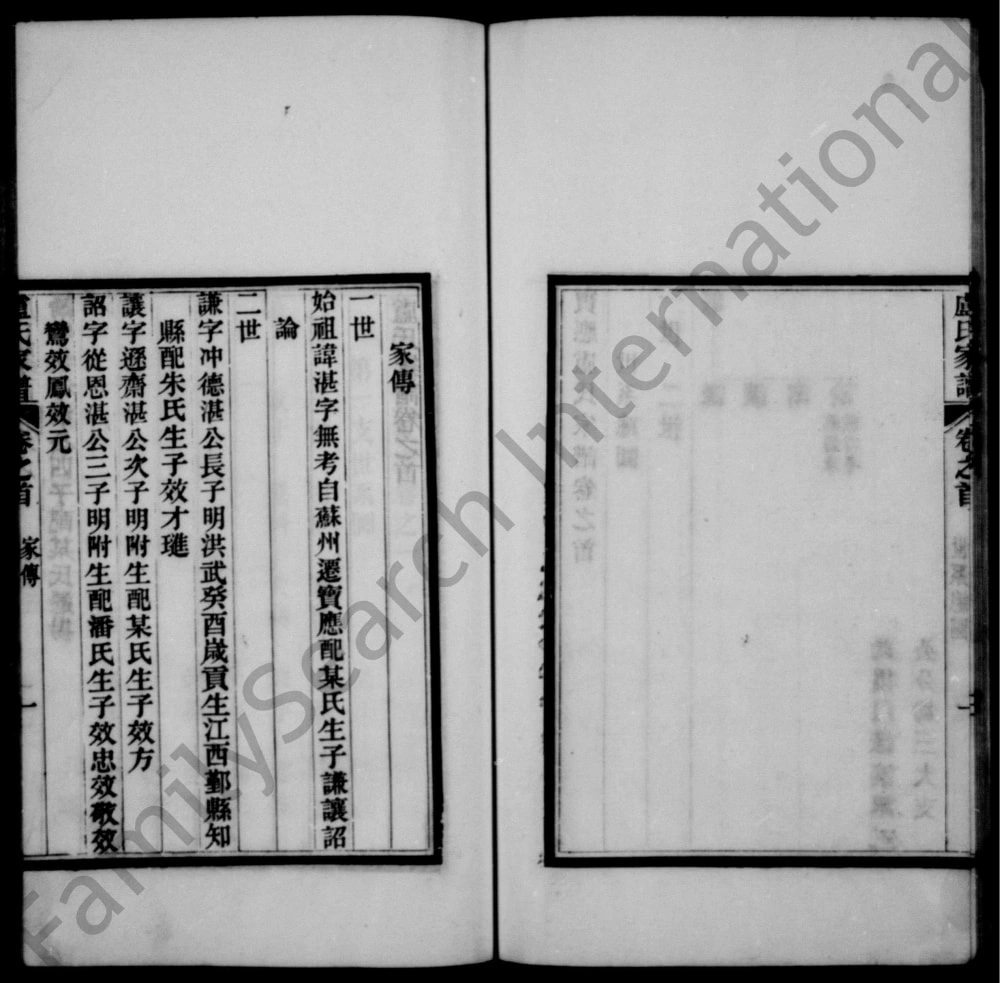 盧氏家譜
卷之首
家傳
一世
始祖諱湛字無考自蘇州遷寶應配某氏生子謙讓詔
論
二世
謙字冲德湛公長子明洪武癸酉歲貢生江西鄞縣知
縣配朱氏生子效才璡
讓字遜齋湛公次子明附生配某氏生子效方
詔字從恩湛公三子明附生配潘氏生子效忠效敬效
鸞效鳳效元
盧氏家譜
卷之首
家傳
一
FamilySearch International